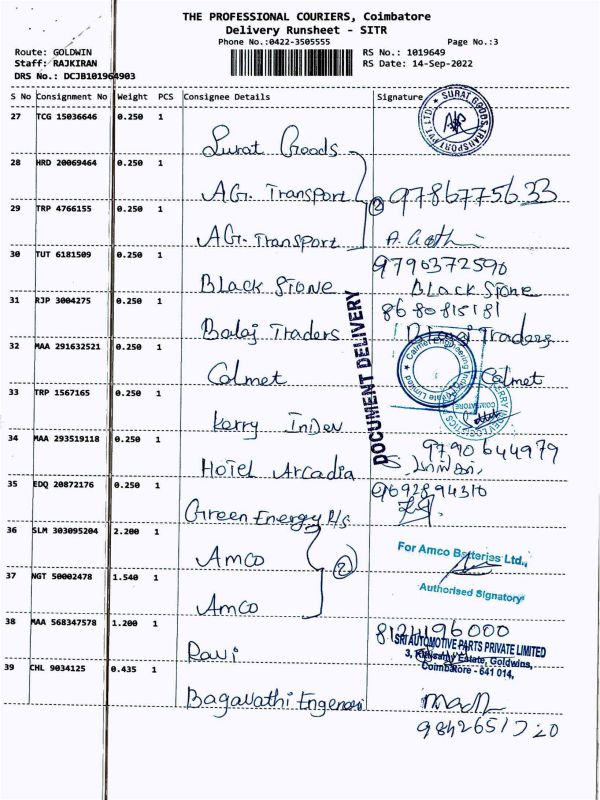 THE PROFESSIONAL COURIERS, Coimbatore
Delivery Runsheet - SITR
Phone No.:0422-3505555
Page No.:3
Route: GOLDWIN
RS No.: 1019649
Staff: RAJKIRAN
RS Date: 14-Sep-2022
DRS No.: DCJB101964903
S No Consignment No Weight PCS Consignee Details Signature
27 TCG 15036646 0.250 1 Surat Goods
SURAT GOODS TRANSPORT PVT. LTD.
28 HRD 20069464 0.250 1 AG. Transport 9786775633
29 TRP 4766155 0.250 1 AG. Transport A.
2
30 TUT 6181509 0.250 1 Black Stone 9790372590
Black Stone
31 RJP 3004275 0.250 1 Balaj Traders 8680815181
Balaj Traders
DOCUMENT DELIVERY
32 MAA 291632521 0.250 1 Calmet Calmet
33 TRP 1567165 0.250 1 Kerry InDev
COIMBATORE
34 MAA 293519118 0.250 1 Hotel Arcadia 9790644979
35 EDQ 20872176 0.250 1 Green Energy P/s 9692894310
36 SLM 303095204 2.200 1 Amco
For Amco Batteries Ltd.,
2
37 NGT 50002478 1.540 1 Amco
Authorised Signatory
38 MAA 568347578 1.200 1 Ravi 8124196000
SRI AUTOMOTIVE PARTS PRIVATE LIMITED
3, Estate, Goldwins,
Coimbatore - 641 014,
39 CHL 9034125 0.435 1 Bagavathi